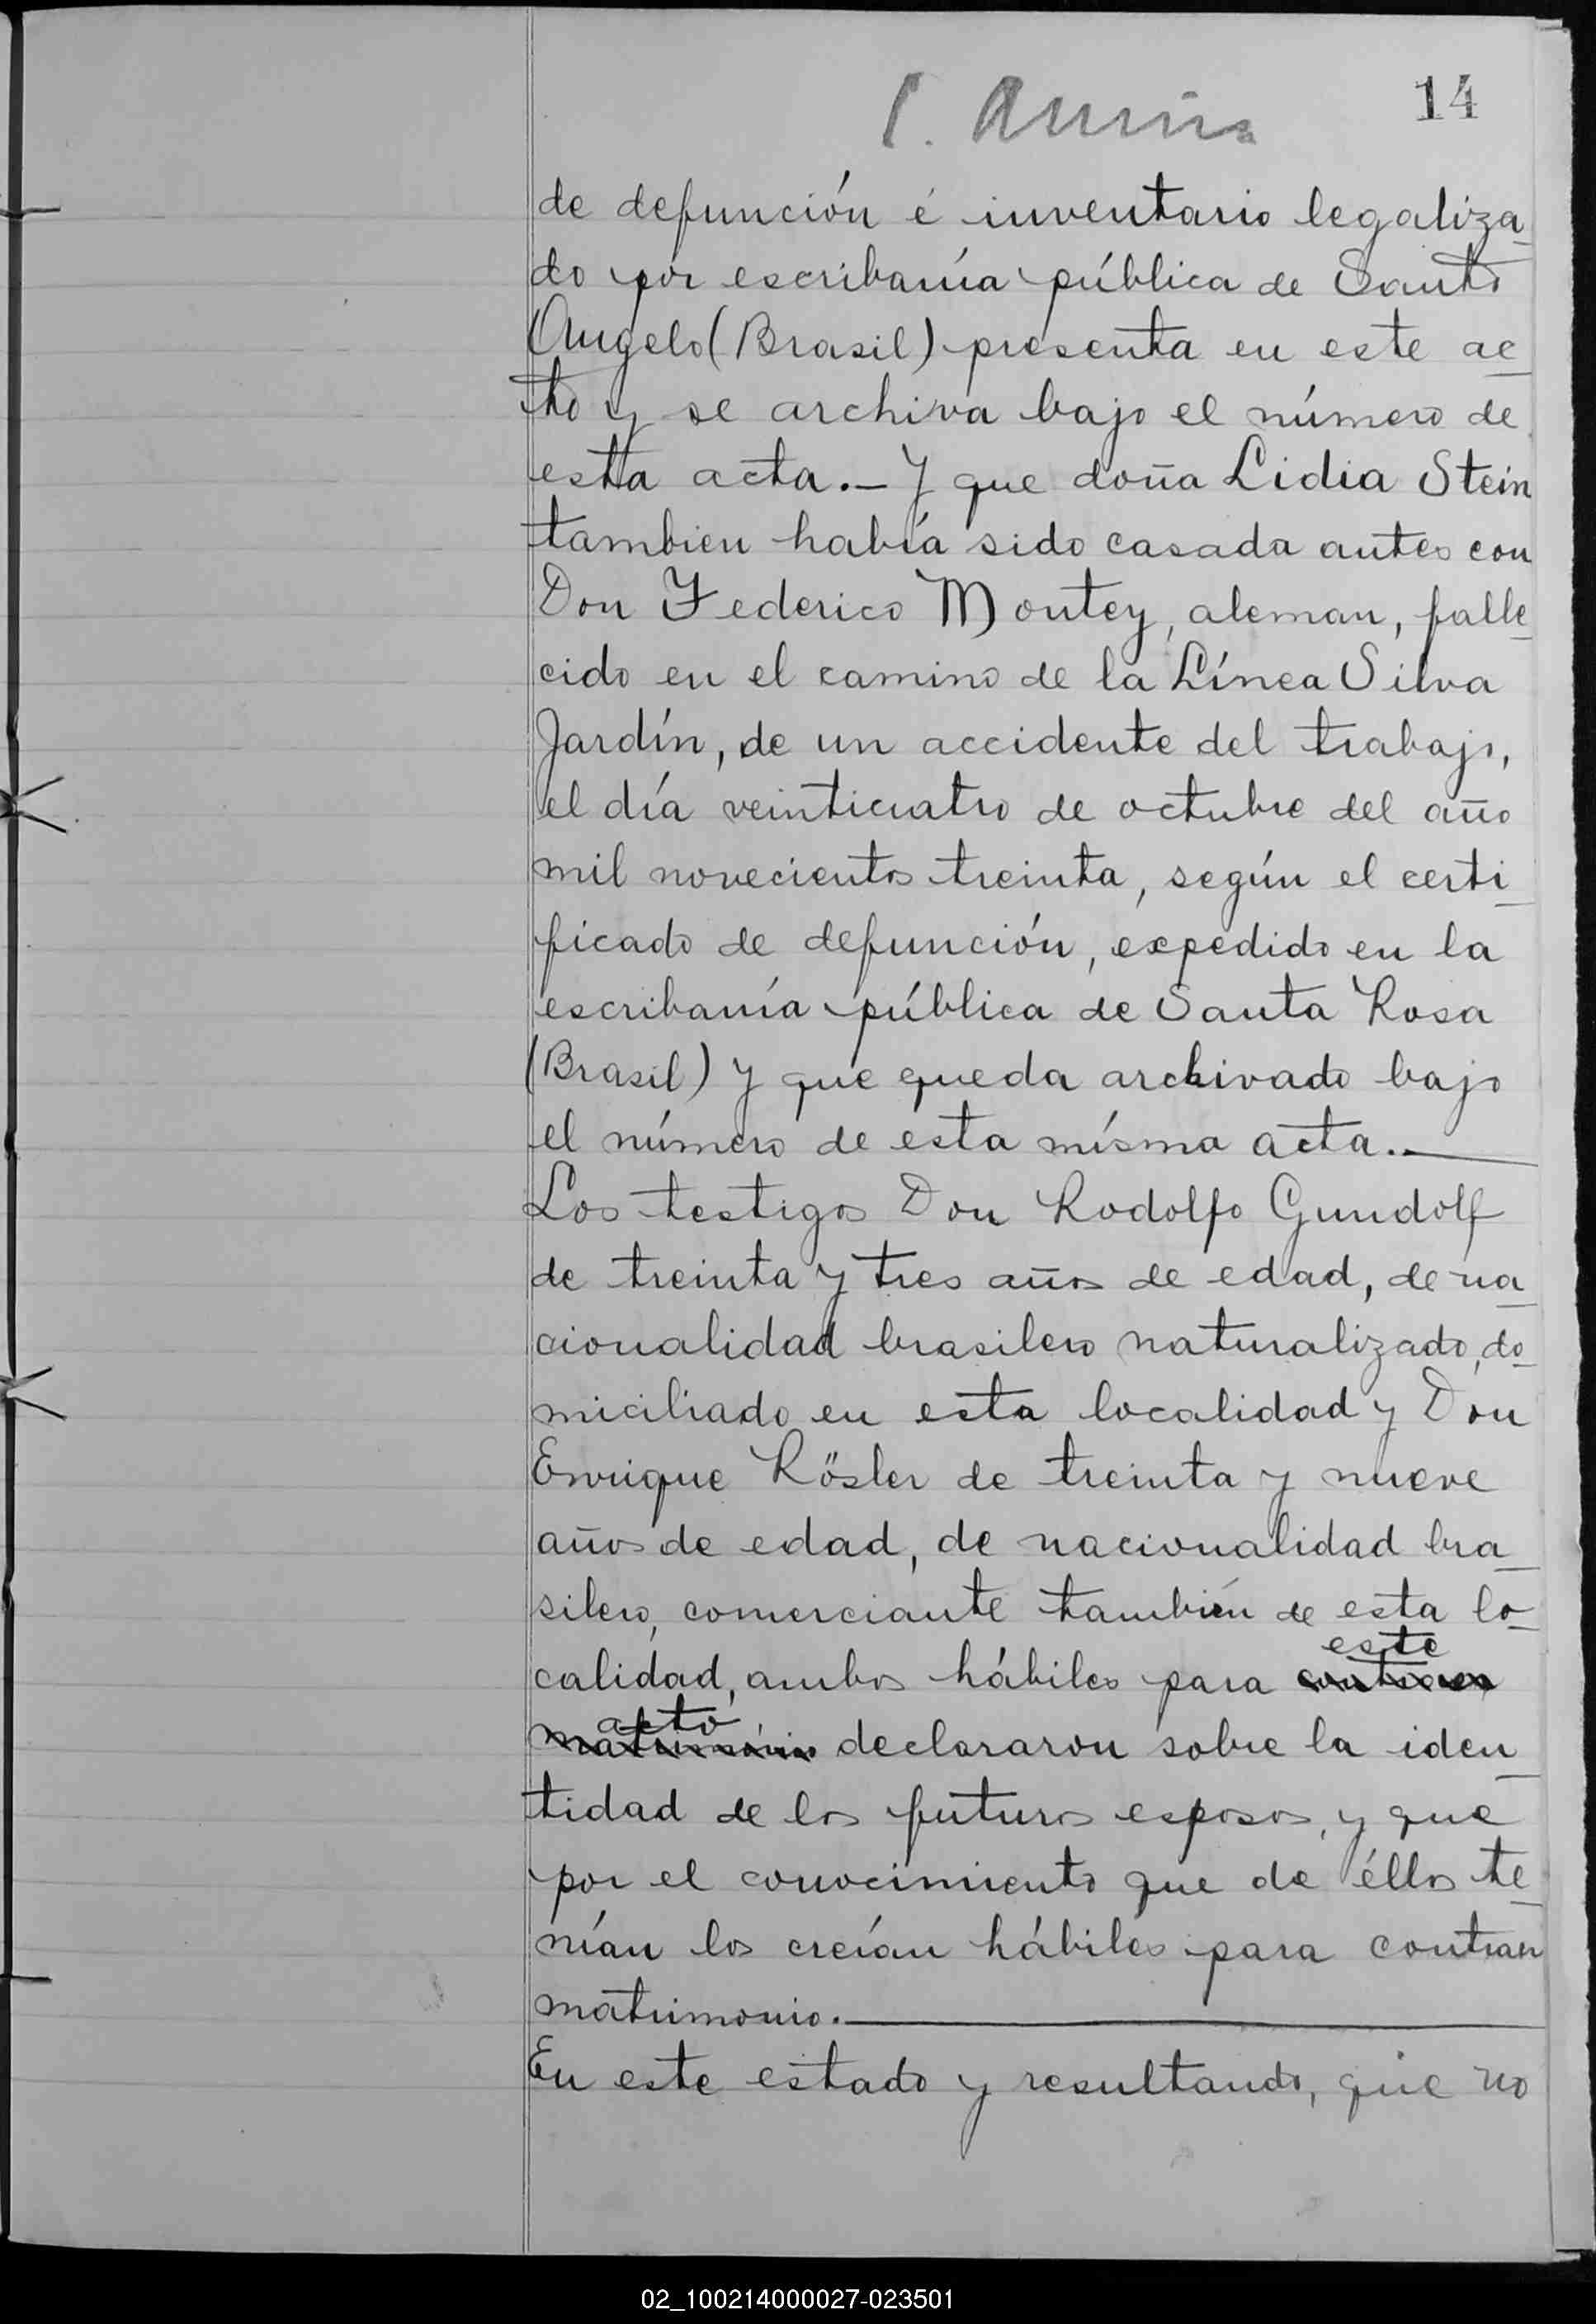 14
de defunción é inventario legaliza
do por escribanía pública de Santo
Angelo (Brasil) presenta en este ac
to y se archiva bajo el número de
esta acta.— Y que doña Lidia Stein
tambien había sido casada antes con
Don Federico Montey, aleman, falle
cido en el camino de la Línea Silva
Jardín, de un accidente del trabajo,
el día veinticuatro de octubre del año
mil novecientos treinta, según el certi
ficado de defunción, expedido en la
escribanía pública de Santa Rosa
(Brasil) y que queda archivado bajo
el número de esta mísma acta.—
Los testigos Don Rodolfo Gundolf
de treinta y tres años de edad, de na
cionalidad brasilero naturalizado, do
miciliado en esta localidad y Don
Enrique Rösler de treinta y nueve
años de edad, de nacionalidad bra
silero, comerciante también de esta lo
este
calidad, ambos hábiles para contraer
acto
matrimónio declararon sobre la iden
tidad de los futuros esposos, y que
por el conocimiento que de éllos te
nían los creían hábiles para contraer
matrimonio.—
En este estado y resultando, que no
02_100214000027-023501